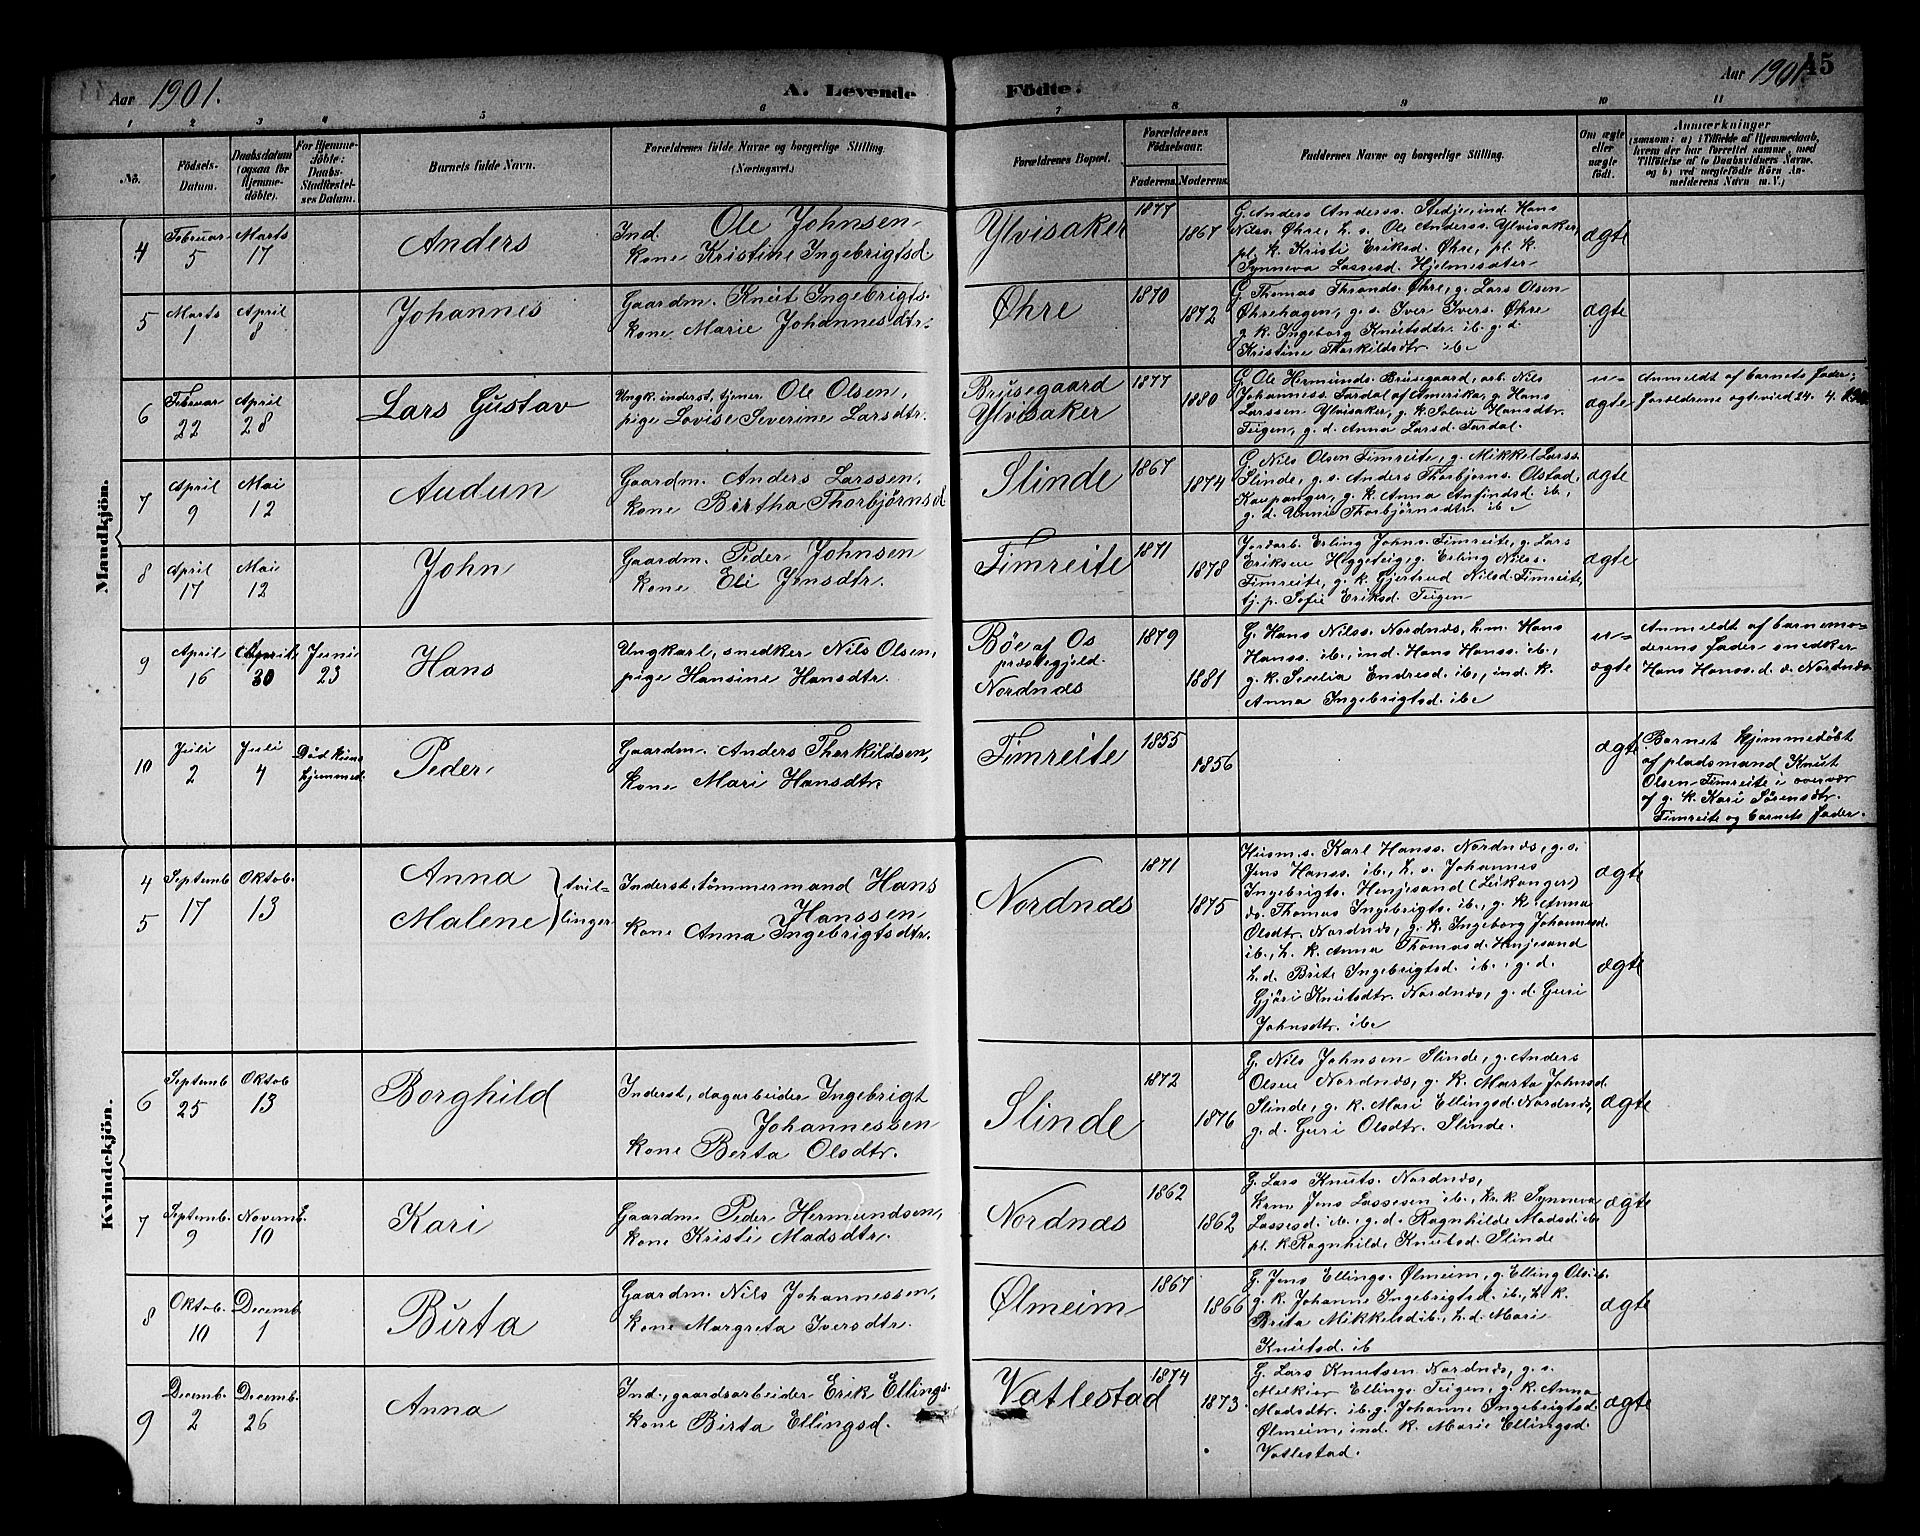 Aar 1901.
A. Levende
Födte.
Aar 1901.
45
1 2 3 4 5 6 7 8 9 10 11
No.
Födsels-
Datum.
Daabsdatum
(ogsaa for
Hjemme-
döbte).
For Hjemme-
döbte:
Daabs-
Stadfæstel-
ses Datum.
Barnets fulde Navn.
Forældrenes fulde Navne og borgerlige Stilling
(Næringsvei.)
Forældrenes Bopæl.
Forældrenes
Födselsaar.
Faderens. Moderens.
Faddernes Navne og borgerlige Stilling.
Om ægte
eller
uægte
født.
Anmærkninger
(saasom: a) i Tilfælde af Hjemmedaab,
hvem der har forrettet samme, med
Tilföielse af to Daabsvidners Navne.
og b) ved uægtefödte Börn An-
melderens Navn m. V.)
Mandkjön.
4
Februar
5
Marts
17
Anders
Ind. Ole Johnsen
kone Kristine Ingebrigtsd.
Ylvisaker
1877
1867
G. Anders Anderss. Stedje, ind. Hans
Nilss. Øhre, h. s. Ole Anderss. Ylvisaker,
pl. k. Kristi Eriksd. Øhre, pl. k.
Synneva Lassesd. Hjelmesæter
ægte
5
Marts
1
April
8
Johannes
Gaardm. Knut Ingebrigts.
kone Marie Johannesdtr.
Øhre
1870
1872
G. Thomas Thronds. Øhre, g. Lars Olsen
Øhrehagen, g. s. Iver Ivers. Øhre
g. k. Ingeborg Knutsdtr. ib. g. d.
Kristine Thorkildsdtr. ib.
ægte
6
Februar
22
April
28
Lars Gustav
Ungk. inderst, tjener Ole Olsen,
pige Lovise Severine Larsdtr.
Brusegaard
Ylvisaker
1877
1880
G. Ole Hermunds. Brusegaard, arb. Nils
Johanness. Tardal af Amerika, g. Hans
Larssen Ylvisaker, g. k. Solvei Hansdtr.
Teigen, g. d. Anna Larsd. Tardal.
u-
ægte
Anmeldt af barnets fader;
forældrene ægtevied 24. 4.
7
April
9
Mai
12
Audun
Gaardm. Anders Larssen,
kone Birtha Thorbjørnsd
Slinde
1867
1874
G. Nils Olsen Fimreite, g. Mikkel Larss.
Slinde, g. s. Anders Thorbjørns. Olstad,
Kaupanger, g. k. Anna Anfindsd. ib.,
g. d. Unni Thorbjørnsdtr. ib.
ægte
8
April
17
Mai
12
John
Gaardm. Peder Johnsen
kone Eli Jensdtr.
Fimreite
1871
1878
Jordarb. Erling Johns. Fimreite, g. Lars
Eriksen Heggeteig, g. Erling Nilss.
Fimreite, g. k. Gjertrud Nilsd. Fimreite,
tj. p. Sofie Eriksd. Teigen
ægte
9
April
16
April
30
Juni
23
Hans
Ungkarl, snedker Nils Olsen,
pige Hansine Hansdtr.
Bøe af Os
præstegjeld.
Nordnæs
1879
1881
G. Hans Nilss. Nordnæs, h.m. Hans
Hanss. ib., ind. Hans Hanss. ib.,
g. k. Secelia Endresd. ib., ind. k.
Anna Ingebrigtsd. ib.
u-
ægte
Anmeldt af barnemo-
derens fader snedker
Hans Hanss. d. æ. Nordnæs
10
Juli
2
Juli
4
Død kuns
hjemmed.
Peder
Gaardm. Anders Thorkildsen,
kone Mari Hansdtr.
Fimreite
1855
1856
ægte
Barnet hjemmedøbt
af pladsmand Knut
Olsen Fimreite i overvær
af g. k. Kari Sørensdtr.
Fimreite og barnets fader.
Kvindekjön.
4
5
Septemb.
17
Oktob.
13
Anna
Malene
tvil-
linger
Inderst, tømmermand Hans
Hanssen
kone Anna Ingebrigtsdtr.
Nordnæs
1871
1875
Husm. s. Karl Hanss. Nordnæs, g. s.
Jens Hanss. ib., h. s. Johannes
Ingebrigts. Henjesand (Leikanger)
do. Thomas Ingebrigts. ib., g. k. Anna
Olsdtr. Nordnæs, g. k. Ingeborg Johannesd.
ib., h. k. Anna Thomasd. Henjesand
h. d. Brite Ingebrigtsd. ib., g. d.
Gjøri Knutsdtr. Nordnæs, g. d. Guri
Johnsdtr. ib.
ægte
ægte
6
Septemb
25
Oktob
13
Borghild
Inderst, dagarbeider Ingebrigt
Johannessen
kone Berta Olsdtr.
Slinde
1872
1876
G. Nils Johnsen Slinde, g. Anders
Olsen Nordnæs, g. k. Marta Johnsd.
Slinde, g. k. Mari Ellingsd. Nordnæs,
g. d. Guri Olsdtr. Slinde.
ægte
7
Septemb.
9
Novemb.
10
Kari
Gaardm. Peder Hermundsen,
kone Kristi Madsdtr.
Nordnæs
1862
1862
G. Lars Knuts. Nordnæs,
Jens Lassesen ib., k. Synneva
Lassesd. ib., g. d. Ragnhilde Madsd. ib.
pl. k. Ragnhilde Knutsd. Slinde
ægte
8
Oktob.
10
Decemb.
1
Birta
Gaardm. Nils Johannessen,
kone Margreta Iversdtr.
Ølmeim
1867
1866
G. Jens Ellings. Ølmeim, g. Elling Ols. ib.
g. k. Johanne Ingebrigtsd. ib., h. k.
Brita Mikkelsd. ib., h. d. Mari
Knutsd. ib
ægte
9
Decemb.
2
Decemb.
26
Anna
Ind., gaardsarbeider Erik Ellings.
kone Birta Ellingsd.
Vatlestad
1874
1873
G. Lars Knutsen Nordnæs, g. s.
Melkior Ellings. Teigen, g. k. Anna
Madsdtr. ib. g. Johanne Ingebrigtsd.
Ølmeim, ind. k. Marie Ellingsd.
Vatlestad.
ægte